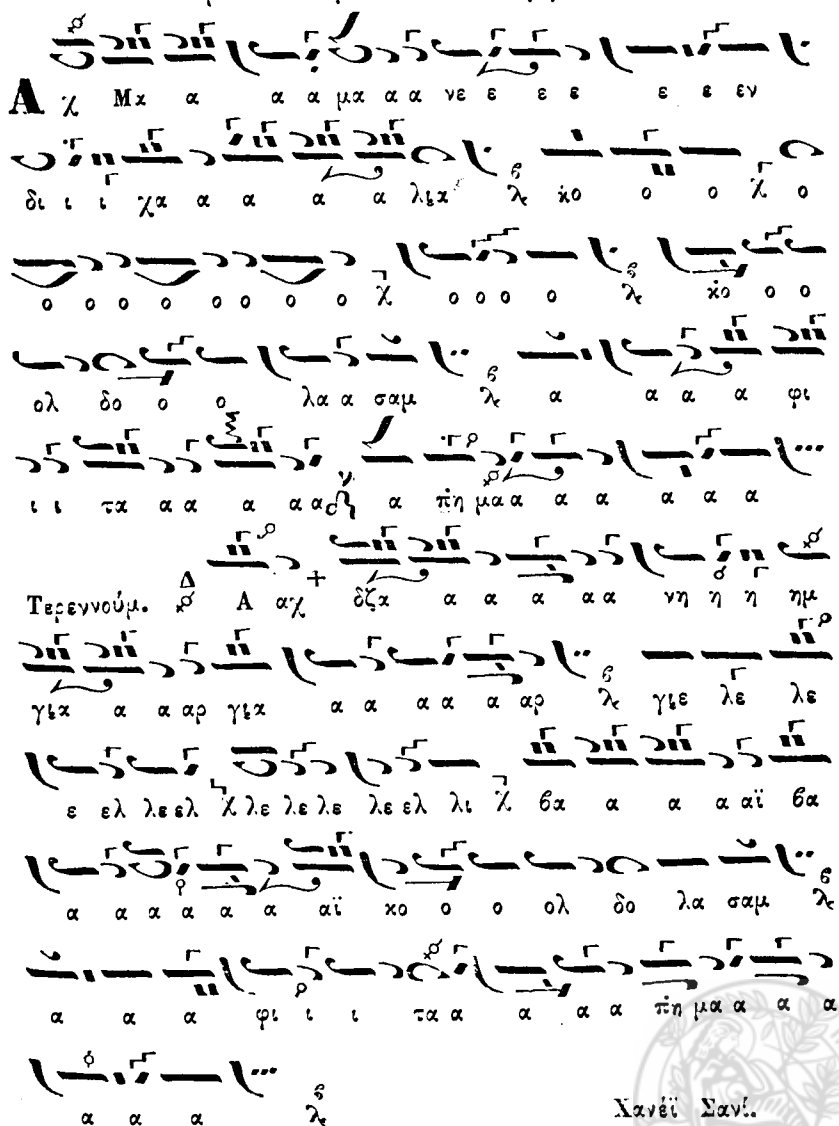 Α χ Μα α α α μα α α νε ε ε ε ε ε εν
δι ι ι χα α α α α λȣα κο ο ο χ ο
ο ο ο ο ο ο ο ο χ ο ο ο ο κο ο ο
ολ δο ο ο λα α σαμ α α α α φι
ι ι τα α α α α α α πη μα α α α α α α
Τερεννούμ. Δ Α αχ δζα α α α α α νη η η ημ
γȣα α α αρ γȣα α α α α α αρ γȣε λε λε
ε ελ λε ελ χ λε λε λε λε ελ λι χ βα α α α αϊ βα
α α α α α α αϊ κο ο ο ολ δο λα σαμ
α α α φι ι ι τα α α α α πη μα α α α
α α α
Χανέϊ Σανί.